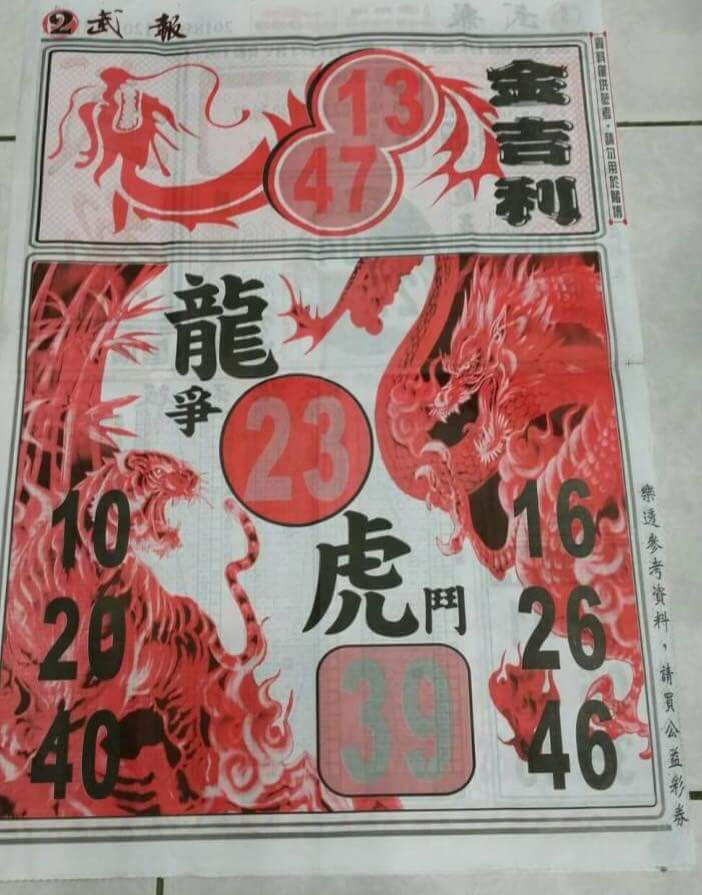 2 武報
13
47
金吉利
資料僅供參考，請勿用於賭博
龍
爭
23
虎
鬥
39
10
20
40
16
26
46
樂透參考資料，請買公益彩券